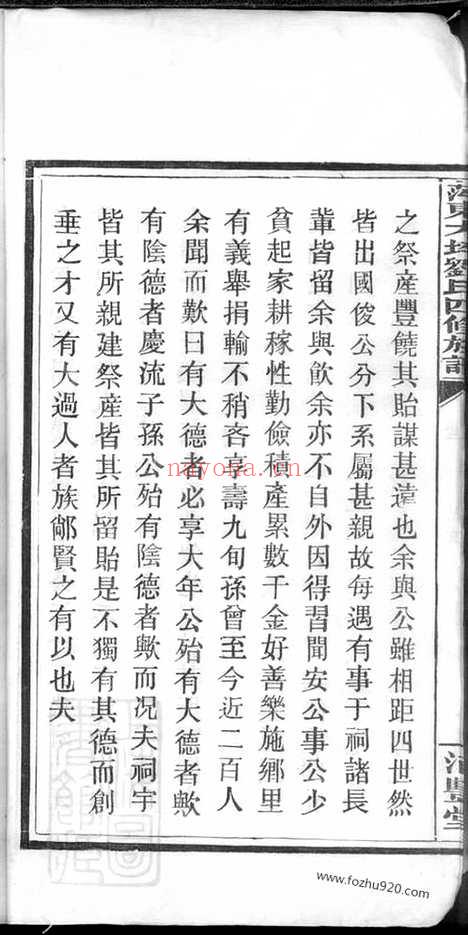 之祭産豐饒其貽謀甚遠也余與公雖相距四世然
皆出國俊公分下系屬甚親故每遇有事于祠諸長
輩皆留余與飲余亦不自外因得習聞安公事公少
貧起家耕稼性勤儉積産累數千金好善樂施鄉里
有義舉捐輸不稍吝享壽九旬孫曾至今近二百人
余聞而歎曰有大德者必享大年公殆有大德者歟
有陰德者慶流子孫公殆有陰德者歟而况夫祠宇
皆其所親建祭産皆其所留貽是不獨有其德而創
垂之才又有大過人者族鄰賢之有以也夫
劉氏四修族譜
豐堂
nayona.cn
www.fozhu920.com